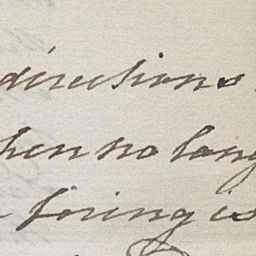 directions
hen no long
firing is